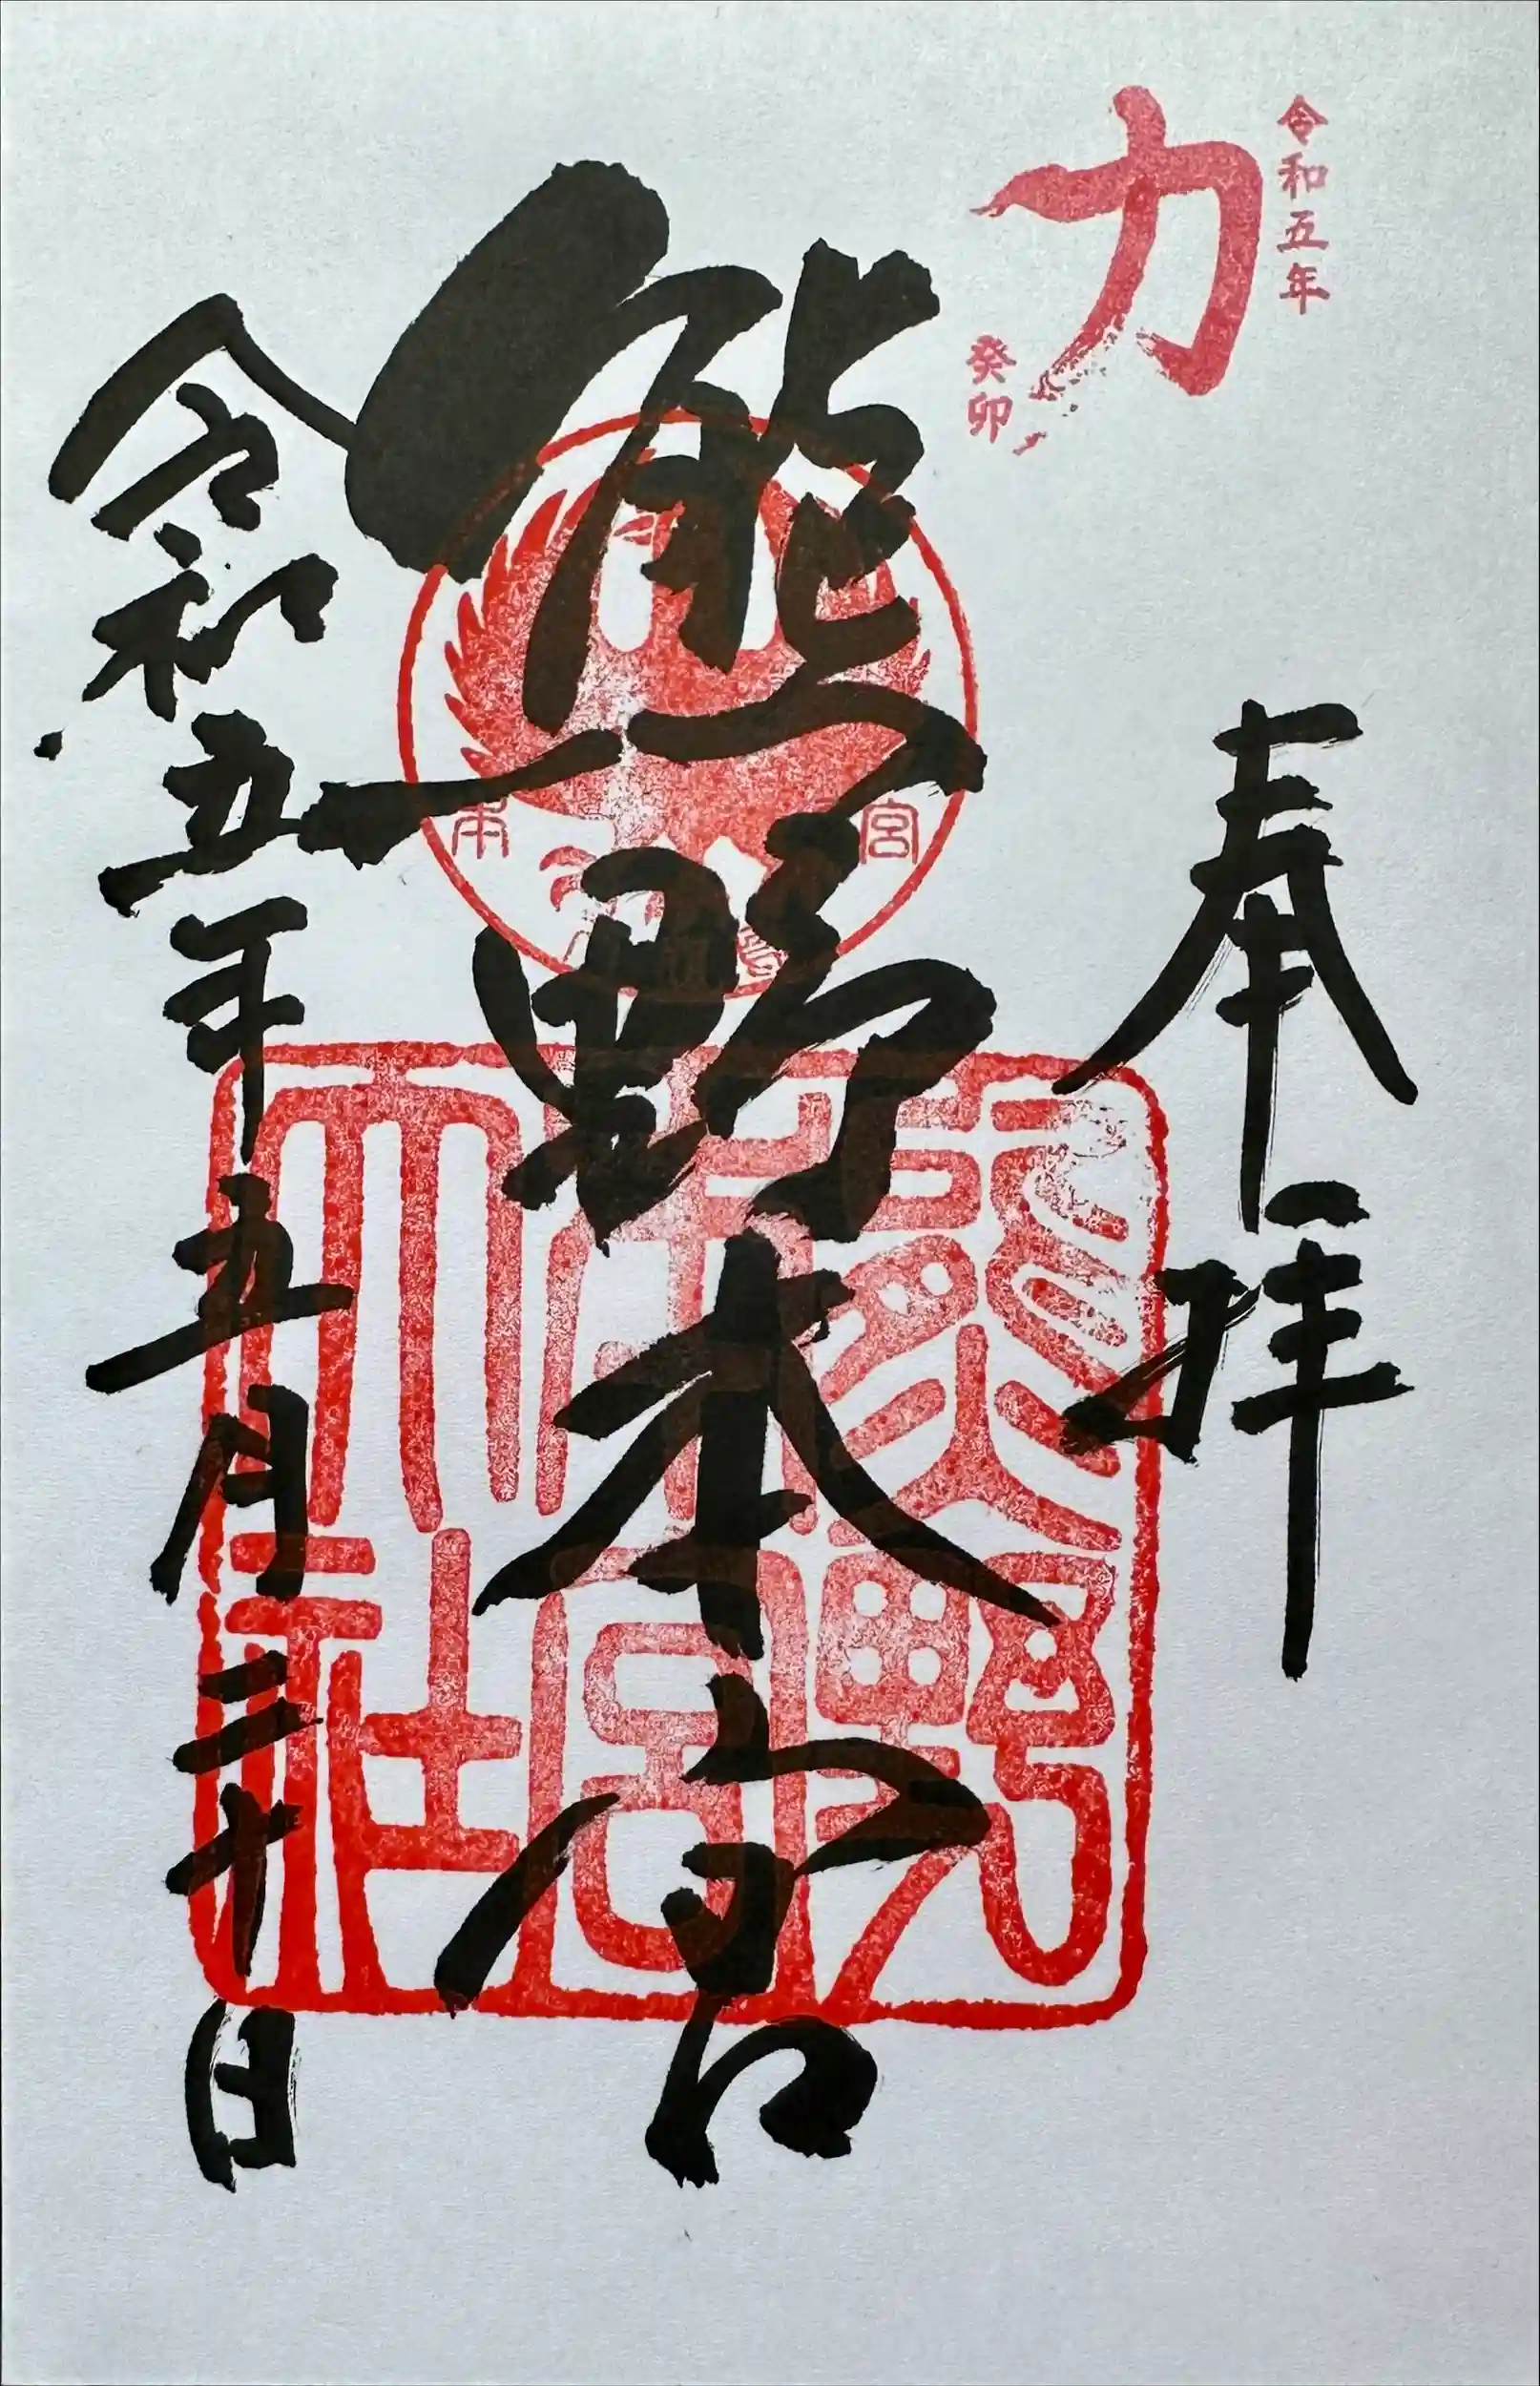 令和五年
力
癸卯
奉拝
熊野本宮
令和五年五月三十日
本 宮
熊野
本宮
大社